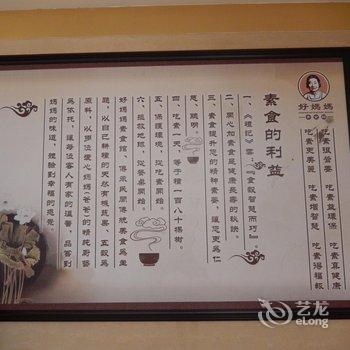 好媽媽
素食館
吃素很營養 吃素真健康
吃素益環保 吃素增智慧
吃素更美麗 吃素得福報
素食的利益
一、《禮記》云：『食穀智慧而巧』。
二、開心加素食是健康長壽的秘訣。
三、素食提升您的精神素養，讓您更為仁
慈、聰明。
四、吃素一天，等于種一百八十棵樹。
五、保護環境，從吃素開始。
六、拯救地球，從餐桌開始。
好媽媽素食館，傳承民間傳統美食為主
題，以自己耕種的天然有機蔬果、五穀為
原料，以爸爸媽媽的精純廚藝
為依托，讓每位客人有家的溫馨，品嘗到
媽媽的味道，體驗到幸福的感覺。
艺龙
eLong